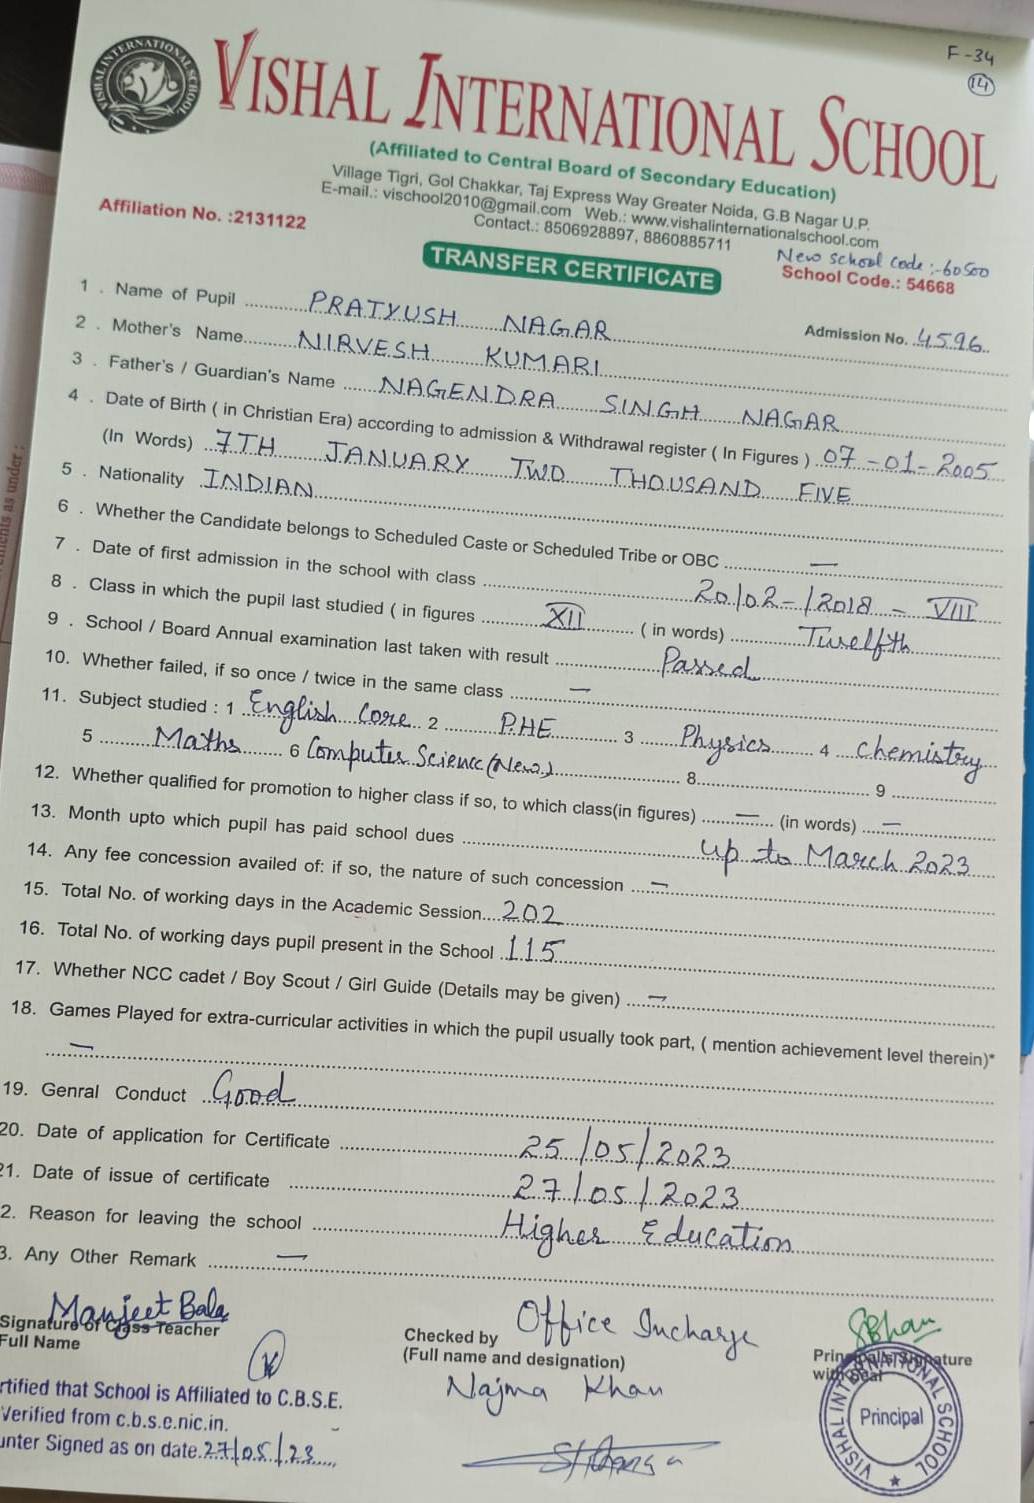 F-34
14
VISHAL INTERNATIONAL SCHOOL
VISHAL INTERNATIONAL SCHOOL
(Affiliated to Central Board of Secondary Education)
Village Tigri, Gol Chakkar, Taj Express Way Greater Noida, G.B Nagar U.P.
E-mail.: vischool2010@gmail.com Web.: www.vishalinternationalschool.com
Affiliation No. :2131122
Contact.: 8506928897, 8860885711
New school code :-60500
TRANSFER CERTIFICATE
School Code.: 54668
1 . Name of Pupil PRATYUSH NAGAR
Admission No. 4596
2 . Mother's Name NIRVESH KUMARI
3 . Father's / Guardian's Name NAGENDRA SINGH NAGAR
4 . Date of Birth ( in Christian Era) according to admission & Withdrawal register ( In Figures ) 07-01-2005
(In Words) 7TH JANUARY TWO THOUSAND FIVE
5 . Nationality INDIAN
6 . Whether the Candidate belongs to Scheduled Caste or Scheduled Tribe or OBC —
7 . Date of first admission in the school with class 20/02-/2018 - VIII
8 . Class in which the pupil last studied ( in figures XII ( in words) Twelfth
9 . School / Board Annual examination last taken with result Passed
10. Whether failed, if so once / twice in the same class —
11. Subject studied : 1 English Core 2 P.HE 3 Physics 4 chemistry
5 Maths 6 Computer Science (New) 8 9
12. Whether qualified for promotion to higher class if so, to which class(in figures) — (in words) —
13. Month upto which pupil has paid school dues up to March 2023
14. Any fee concession availed of: if so, the nature of such concession —
15. Total No. of working days in the Academic Session 202
16. Total No. of working days pupil present in the School 115
17. Whether NCC cadet / Boy Scout / Girl Guide (Details may be given) —
18. Games Played for extra-curricular activities in which the pupil usually took part, ( mention achievement level therein)*
—
19. Genral Conduct Good
20. Date of application for Certificate 25/05/2023
21. Date of issue of certificate 27/05/2023
2. Reason for leaving the school Higher Education
3. Any Other Remark —
Manjeet Bala
Signature of Class Teacher
Full Name
Checked by Office Incharge
(Full name and designation)
Najma Khan
Principal's Signature
with Seal
VISHAL INTERNATIONAL SCHOOL
Principal
rtified that School is Affiliated to C.B.S.E.
Verified from c.b.s.e.nic.in.
unter Signed as on date 27/05/23